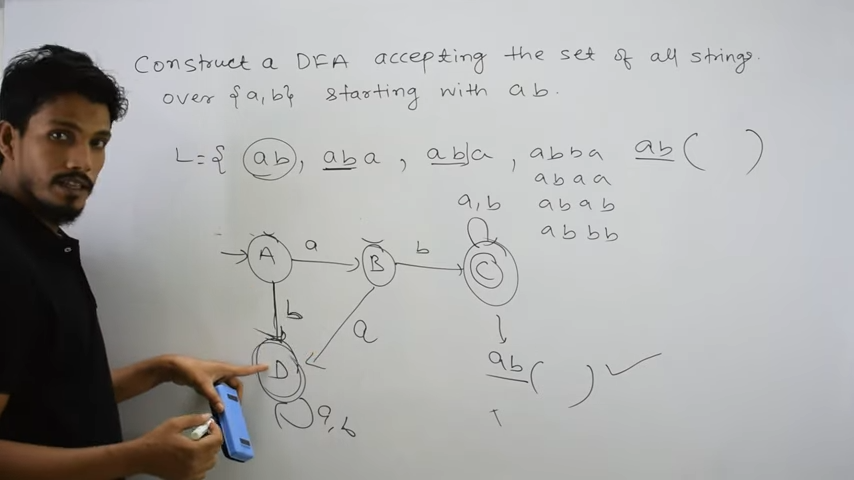 Construct a DFA accepting the set of all strings.
over {a,b} starting with ab.
L={ ab, aba, ab|a, abba ab( )
abaa
abab
abbb
a,b
A a B b C
b a
D
a,b
ab( )